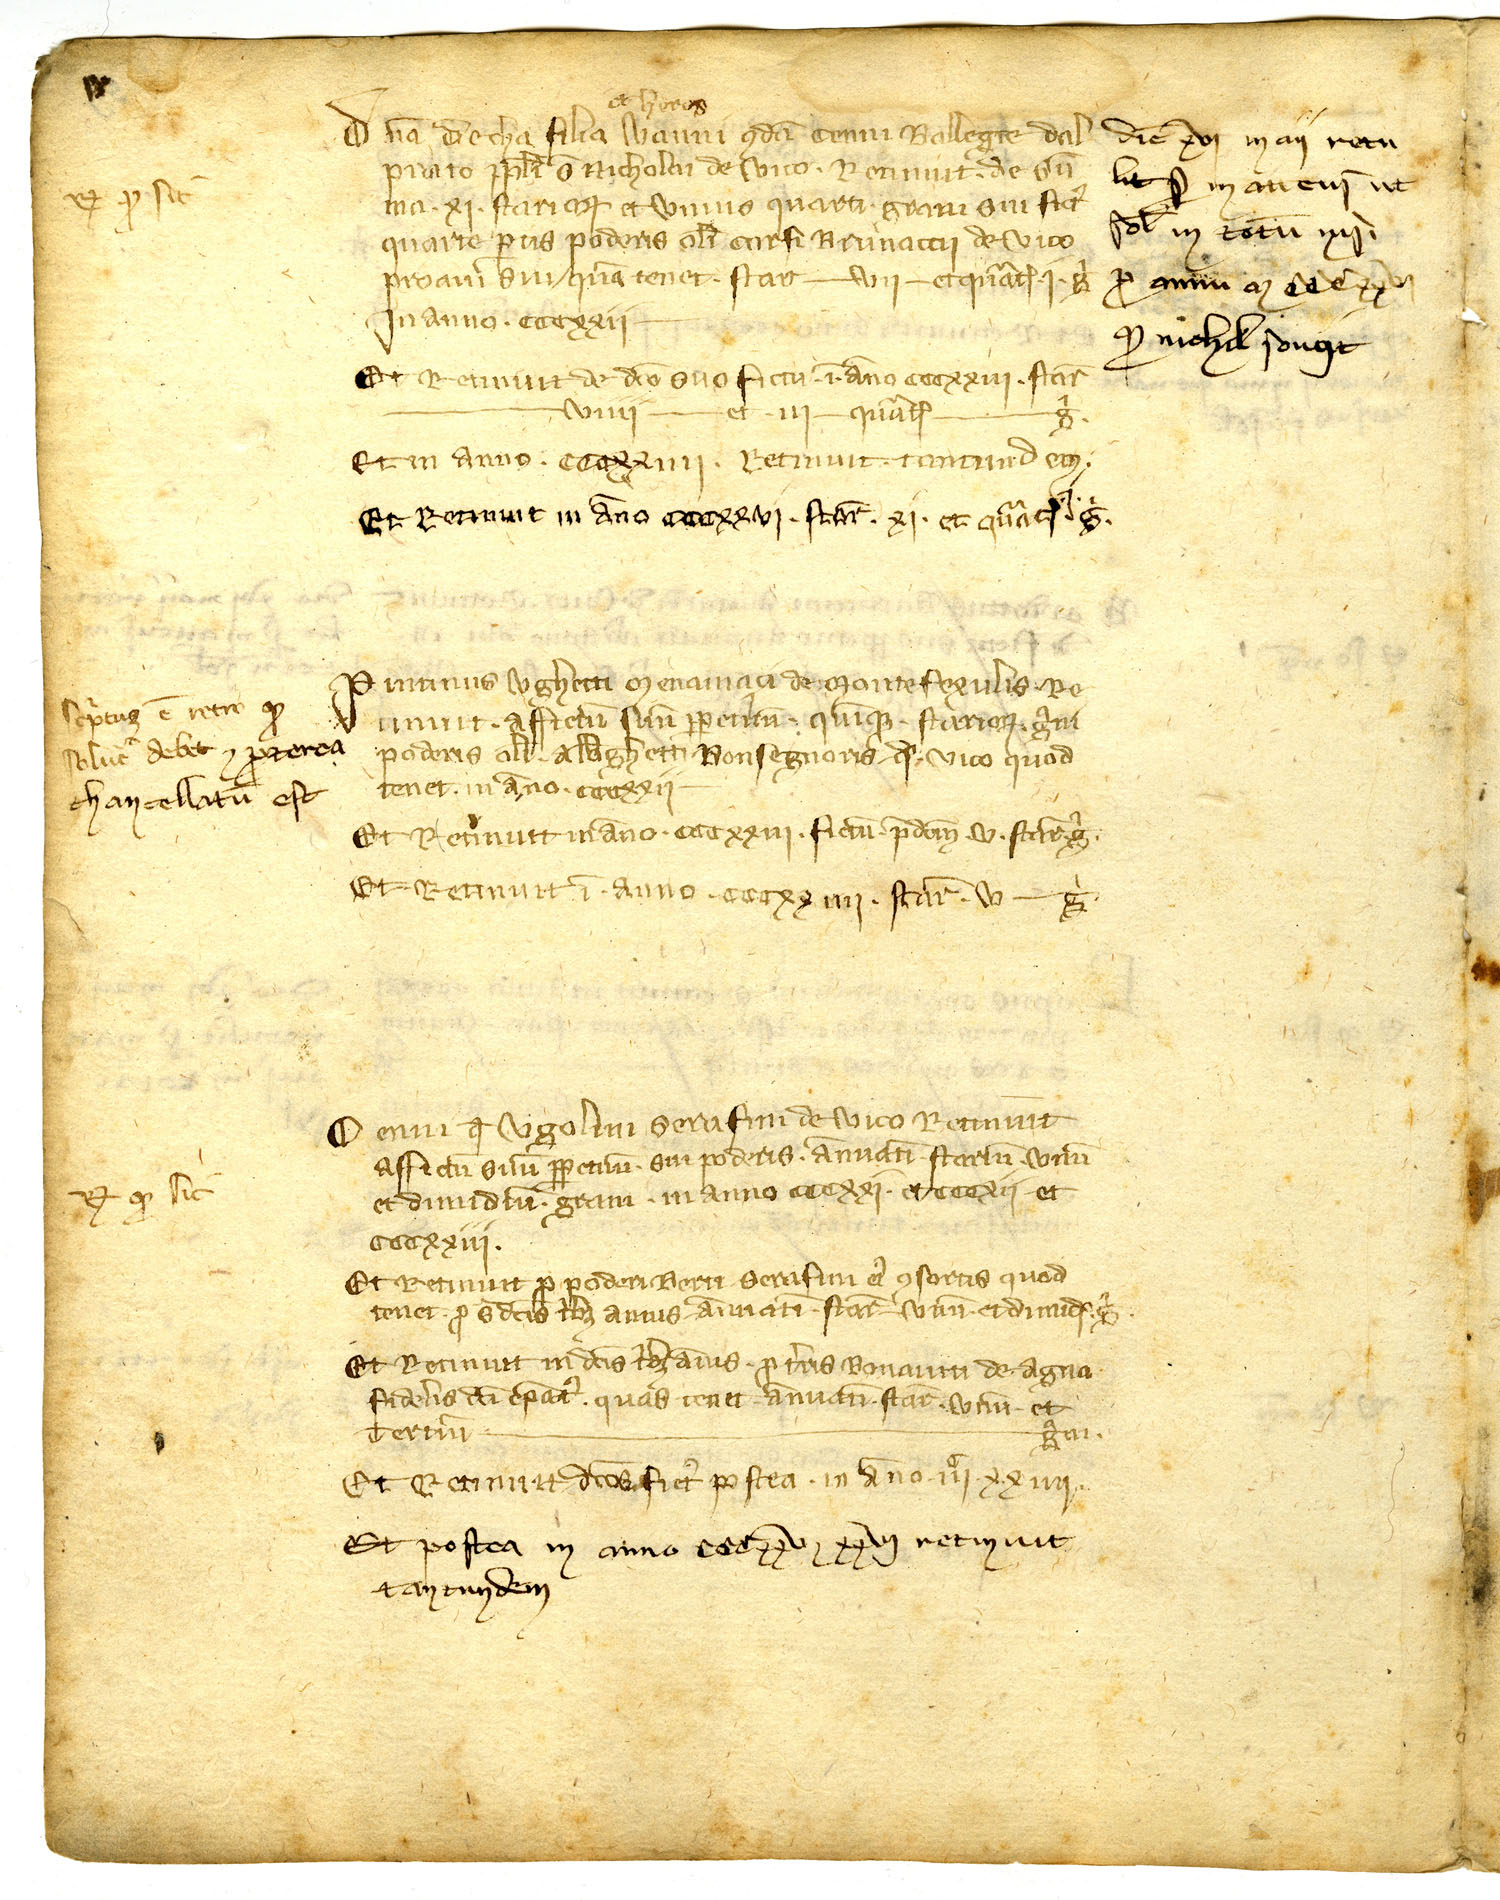 et heres
Dna Decha filia Vanni qdā Cenni Ballegie dal
prato ppli S Nicholai de Vico. Retinuit. de sū
ma. xi. starioꝝ et unius quarti grani sui fict
quarte ptis poderis oli Corsi Brunaccij de Vico
proavi sui, quā tenet. star — viij — et qrat. j. g
In anno. cccxxii —
Et Retinuit de dco suo fictu. ī. āno cccxxiii. star
— viiij — et iij — qrat — g.
Et in anno. cccxxiiii. Retinuit. tantundem.
Et Retinuit in āno cccxxvi. star. xi. et qrat. j. g.
die xvj maij retu
lit in
sol in totū nisi
ꝓ annū
nichil
R ꝓ sic
Pinus Ughetti de Montefexulis. Re
tinuit. affictū suū ppetuū. quinqꝫ. starioꝝ. gni
poderis oli. Aldighetti Bonsegnoris. d. Vico quod
tenet. in āno. cccxxij —
Et Retinuit in āno. cccxxiii. fictū. pdcm. v. star. g.
Et Retinuit ī. anno. cccxxiiii. star. v — g.
scptus ē retro
debet et pterea
chancellatū est
Cenni q Ugolini Serafini de Vico Retinuit
affictū suū ppetuū. sui poderis. ānuati. stariū. unū
et dimidiū. grani. in anno cccxxi. et cccxxij et
cccxxiij.
Et Retinuit ꝓ poderi Berti Serafini et ꝯsortis quod
tenet. ꝓ sdcis trib annis ānuati. star. unū. et dimid. g.
Et Retinuit in dcis trib ānis. ꝓ tris Bonaiuti de Agna
fidelis dci epat. quas tenet ānuati. star. unū. et
tertiū — gni.
Et Retinuit dcos fict postea. in āno. xxiiij.
Et postea in anno cccxxv et xxvj retinuit
tantundem
R ꝓ sic